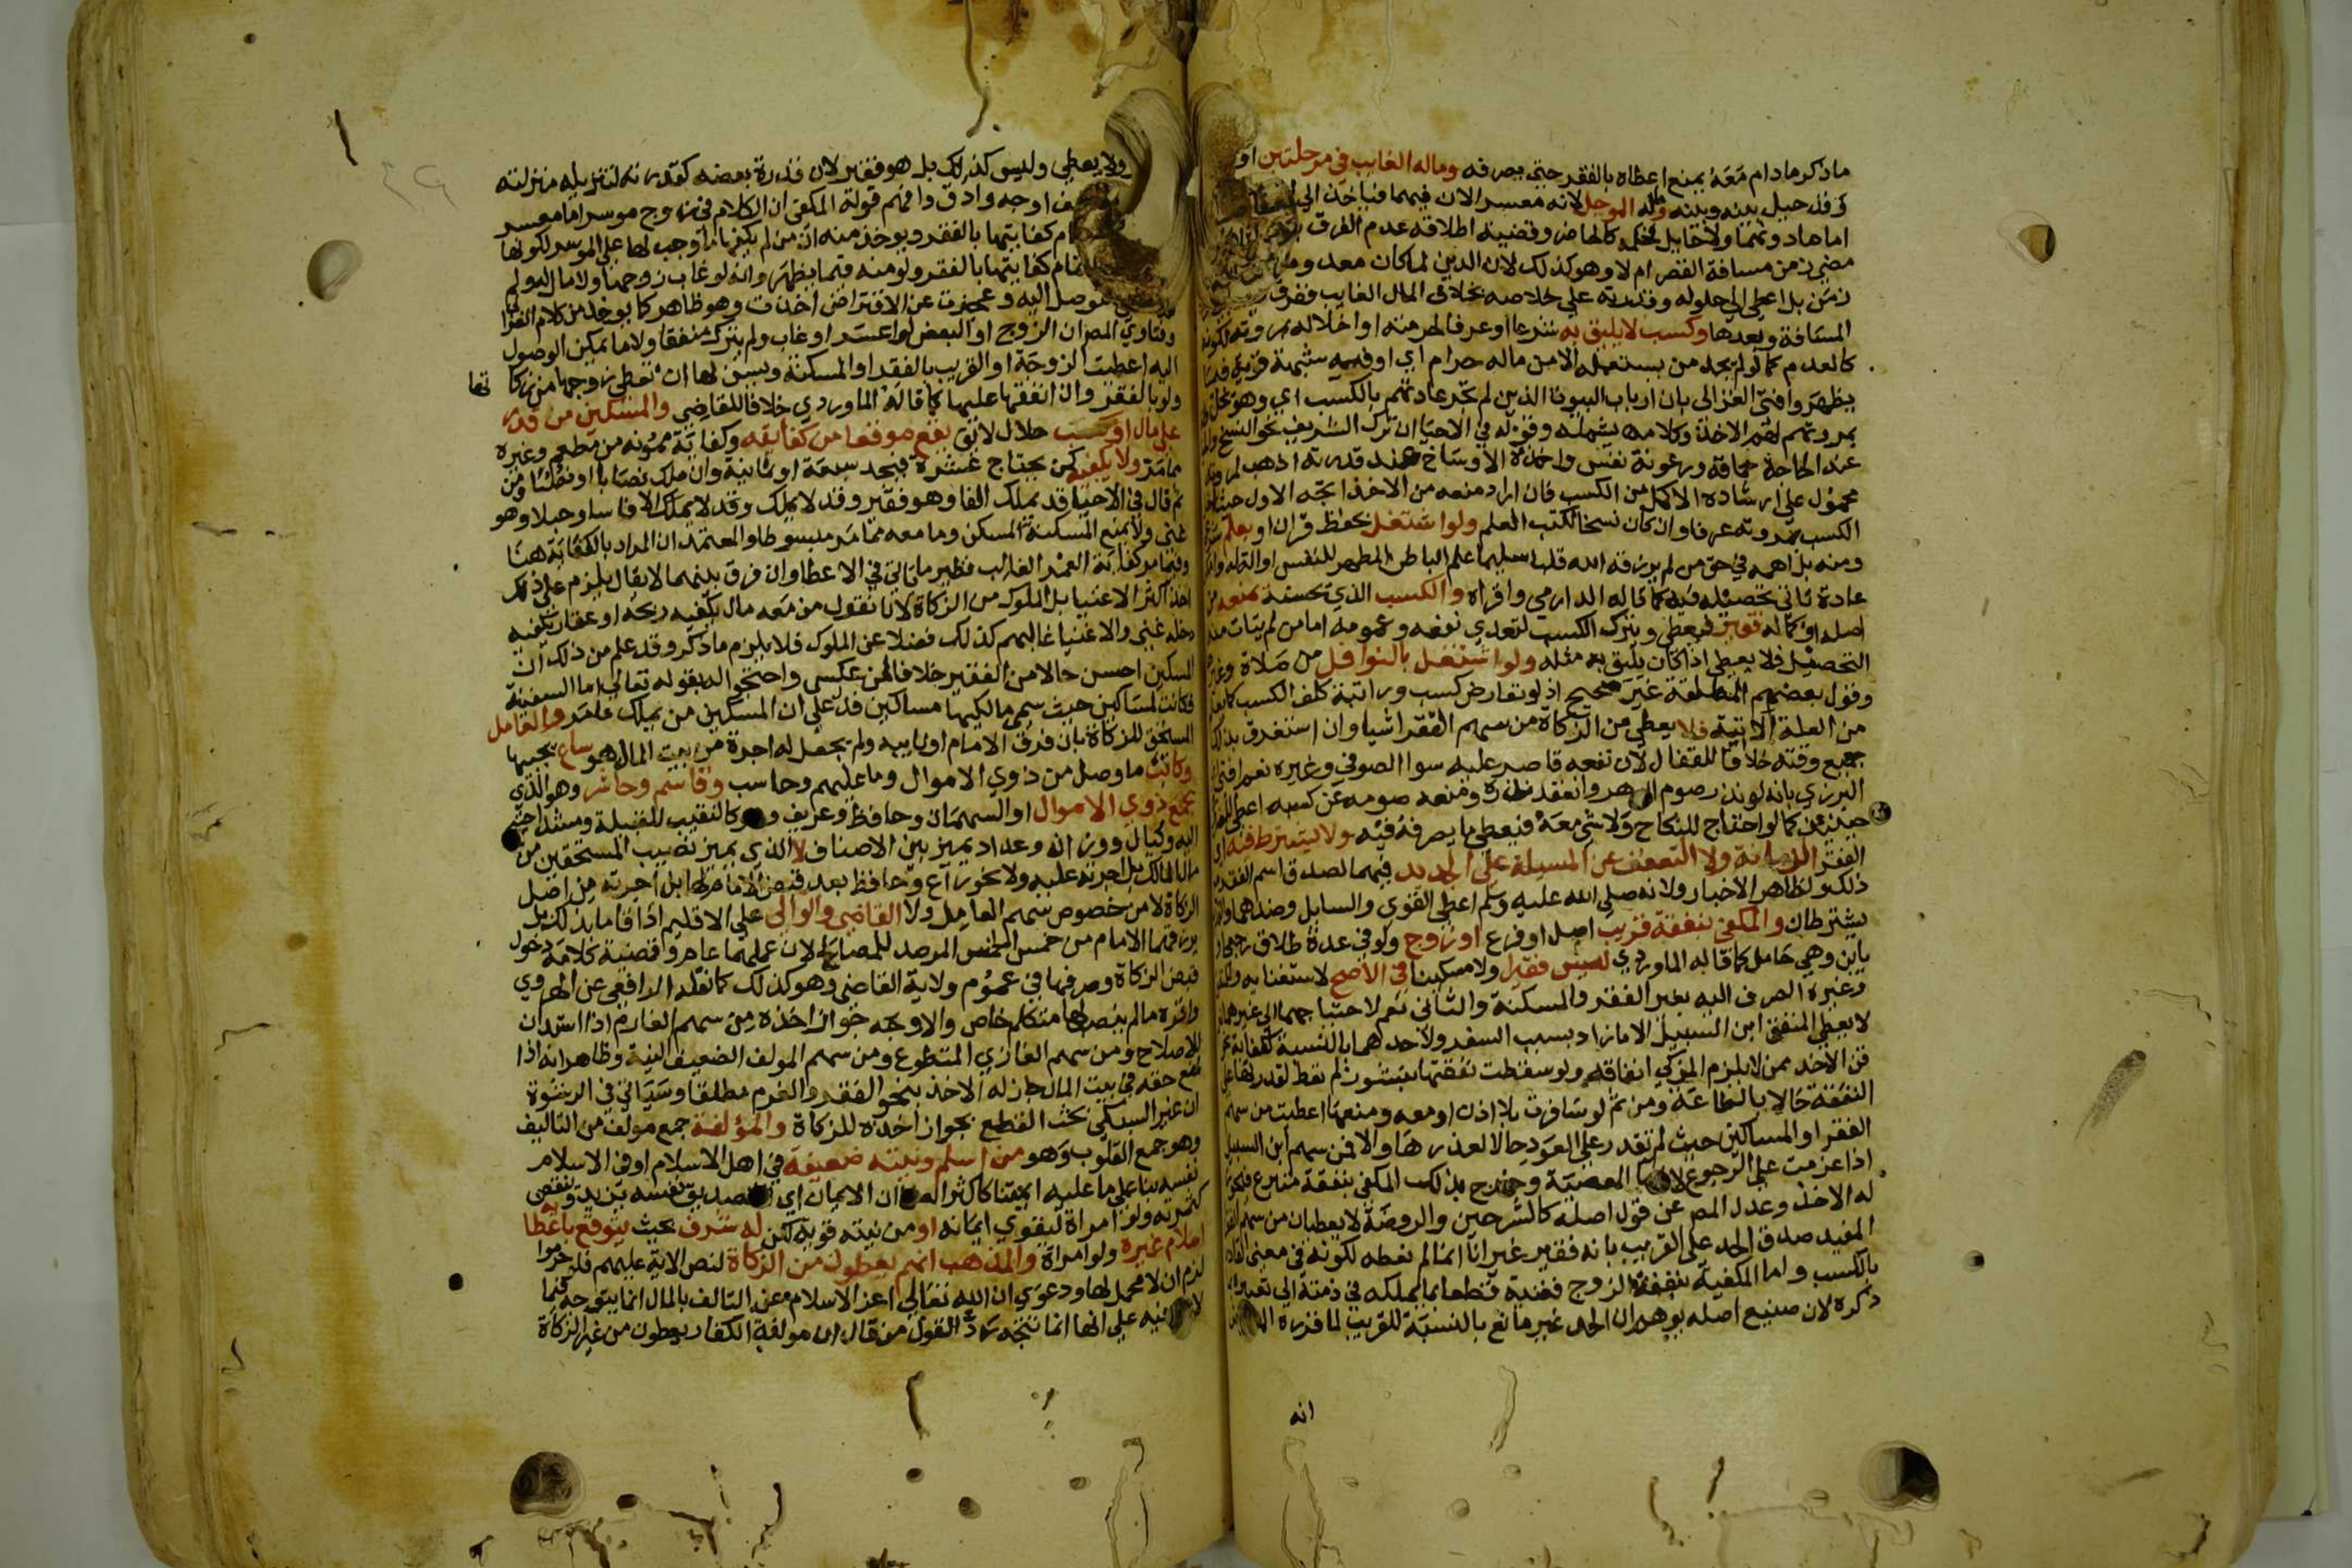 ماذكر مادام معه يمنع اعطاه بالفقر حتي يصرفه وماله الغايب في مرحلتين او
قد حيل بينه وبينه وله الموجل لانه معسر الان فيهما فياخذ الي
مضي زمن مسافة القصر ام لا وهو كذلك لان الدين لما كان معدوما
زمن بل اعطي الي حلوله وقدرته علي خلاصه بخلاف المال الغايب ففرق
المسافة وبعدها وكسب لا يليق به شرعا او عرفا لحرمته او اخلاله بمروته لكونه
كالعدم كما لو لم يجد من يستعمله الا من ماله حرام اي او فيه شبهة قوية
يظهر وافتي الغزالي بان ارباب البيوت الذين لم تجر عادتهم بالكسب اي وهو يخل
بمروتهم لهم الاخذ وكلامه يشمله وقوله في الاحيا ان ترك الشريف نحو النسخ
عند الحاجة حماقة ورعونة نفس واخذه الاوساخ عند قدرته اذهب لمروته
محمول علي ارشاده الاكمل من الكسب فان اراد منعه من الاخذ اتجه الاول حيث
الكسب بمروته عرفا وان كان نسخا لكتب العلم ولو اشتغل بحفظ قران او بعلم
ومنه بل اهمه في حق من لم يرزقه الله قلبا سليما علم الباطن المطهر للنفس
عادة تاتي تحصيله فيه كما قاله الدارمي واقراه والكسب الذي يحسنه يمنعه
اصله او كماله فقير فيعطي ويترك الكسب لتعدي نفعه وعمومه اما من لم يتات منه
التحصيل فلا يعطي اذا كان يليق به مثله ولو اشتغل بالنوافل من صلاة وغيرها
وقول بعضهم المطلقة غير صحيح اذ لو تعارض كسب وراتبة كلف الكسب كما يعلم
من العلة الاتية فلا يعطي من الزكاة من سهم الفقرا شيا وان استغرق بذلك
جميع وقته خلافا للقفال لان نفعه قاصر عليه سوا الصوفي وغيره نعم افتي
البرزي بانه لو نذر صوم الدهر وانعقد نذره ومنعه صومه عن كسبه اعطي
حينيذ كما لو احتاج للنكاح ولا شي معه فيعطي ما يصرفه فيه ولا يشترط فيه
الفقر الزمانة ولا التعفف عن المسيلة علي الجديد فيهما لصدق اسم الفقر
ذلك ولظاهر الاخبار ولانه صلي الله عليه وسلم اعطي القوي والسايل وضدهما
يشترطان والمكفي بنفقة قريب اصل او فرع او زوج ولو في عدة طلاق رجعي
باين وهي حامل كما قاله الماوردي ليس فقيرا ولا مسكينا في الاصح لاستغنايه
وغيره الصرف اليه بغير الفقر والمسكنة والثاني نعم لاحتياجهما الي غيرهما
لا يعطي المنفق ابن السبيل الا مازاد بسبب السفر ولاحدهما بالنسبة لكفاية
فن الاخد ممن لا يلزم المزكي انفاقه ولو سقطت نفقتها بنشوز لم تعط لقدرتها علي
النفقة حالا بالطاعة ومن ثم لو سافرت بلا اذن او معه ومنعها اعطيت من سهم
الفقرا والمساكين حيث لم تقدر علي العود حالا لعذرها والا فمن سهم ابن السبيل
اذا عزمت علي الرجوع المعصية وخرج بذلك المكفي بنفقة متبرع فيجوز
له الاخذ وعدل المص عن قول اصله كالشرحين والروضة لا يعطيان من سهم
المفيد صدق الحد علي القريب بانه فقير غير انا انما لم نعطه لكونه في معني القادر
بالكسب واما المكفية بنفقة الزوج فغنية قطعا بما تملكه في ذمته الي تعبيره
ذكره لان صنيع اصله يوهم ان الحد غير مانع بالنسبة للقريب لما قرره
انه
ولا يعطي وليس كذلك بل هو فقير لان قدرة بعضه كقدرته لتنزيله منزلته
اوجه وادق وافهم قوله المكفي ان الكلام في زوج موسر اما معسر
كفايتها بالفقر ويوخذ منه ان من لم يكفها ما وجب لها علي الموسر لكونها
تمام كفايتها بالفقر ولو منه فيما يظهر وانه لو غاب زوجها ولا مال له ولم
توصل اليه وعجزت عن الاقتراض اخذت وهو ظاهر كما يوخذ من كلام الغزالي
وفتاوي المص ان الزوج او البعض لو اعسر او غاب ولم يترك منفقا ولا ما يمكن الوصول
اليه اعطيت الزوجة او القريب بالفقر او المسكنة ويسن لها ان تعطي زوجها من زكا
تها
ولو بالفقر وان انفقها عليها كما قاله الماوردي خلافا للقاضي والمسكين من قدر
علي مال او كسب حلال لايق يقع موقعا من كفايته وكفاية ممونه من مطعم وغيره
مما مر ولا يكفيه كمن يحتاج عشرة فيجد سبعة او ثمانية وان ملك نصابا او نصبا ومن
ثم قال في الاحيا قد يملك الفا وهو فقير وقد لا يملك الا فاسا وحبلا وهو
غني ولا يمنع المسكنة المسكن وما معه مما مر مبسوطا والمعتمد ان المراد بالكفاية هنا
وفيما مر كفاية العمر الغالب نظير ما ياتي في الاعطا وان فرق بينهما لا يقال يلزم علي ذلك
اخذ اكثر الاغنيا بل الملوك من الزكاة لانا نقول من معه مال يكفيه ربحه او عقار يكفيه
دخله غني والاغنيا غالبهم كذلك فضلا عن الملوك فلا يلزم ماذكر وقد علم من ذلك ان
المسكين احسن حالا من الفقير خلافا لمن عكس واحتجوا له بقوله تعالي اما السفينة
فكانت لمساكين حيث سمي مالكيها مساكين فدل علي ان المسكين من يملك مامر والعامل
المستحق للزكاة بان فرق الامام او نايبه ولم يجعل له اجرة من بيت المال هو ساع يجبيها
وكاتب ما وصل من ذوي الاموال وما عليهم وحاسب وقاسم وحاشر وهو الذي
يجمع ذوي الاموال او السهمان وحافظ وعريف وهو كالنقيب للقبيلة ومشد احتيج
اليه وكيال ووزان وعداد يميز بين الاصناف لا الذي يميز نصيب المستحقين من
مال المالك بل اجرته عليه ولا نحو راع وحافظ بعد قبض الامام لها بل اجرته من اصل
الزكاة لا من خصوص سهم العامل ولا القاضي والوالي علي الاقليم اذا قاما بذلك بل
يرزقهما الامام من خمس الخمس المرصد للمصالح لان عملهما عام وقضية كلامه دخول
قبض الزكاة وصرفها في عموم ولاية القاضي وهو كذلك كما نقله الرافعي عن الهروي
واقره ما لم ينصب لها متكلم خاص والاوجه جواز اخذه من سهم الغارم اذا استدان
للاصلاح ومن سهم الغازي المتطوع ومن سهم المولف الضعيف النية وظاهر انه اذا
منع حقه في بيت المال جاز له الاخذ بنحو الفقر والغرم مطلقا وسياتي في الرشوة
ان غير السبكي بحث القطع بجواز اخذه للزكاة والمؤلفة جمع مولف من التاليف
وهو جمع القلوب وهو من اسلم ونيته ضعيفة في اهل الاسلام او في الاسلام
نفسه بنا علي ما عليه ايمتنا كاكثر ان الايمان اي التصديق نفسه يزيد وينقص
كثمرته ولو امراة ليقوي ايمانه او من نيته قوية لكن له شرف بحيث يتوقع باعطا
اسلام غيره ولو امراة والمذهب انهم يعطون من الزكاة لنص الاية عليهم فلو حرموا
لزم ان لا محمل لها ودعوي ان الله تعالي اعز الاسلام عن التالف بالمال انما يتوجه فيما
لا علي انها انما تتجه رد القول من قال ان مولفة الكفار يعطون من غير الزكاة